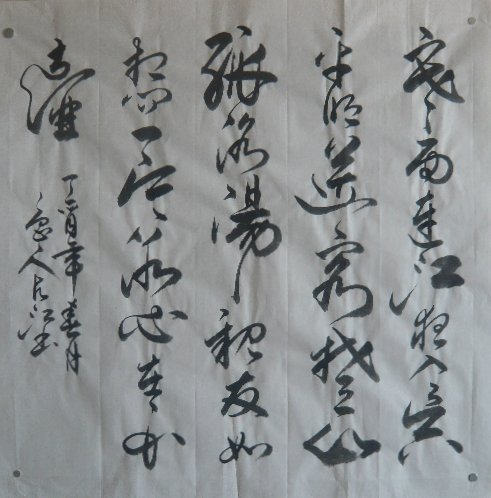 寒雨連江夜入吴
平明送客楚山
孤洛陽親友如
相问一片冰心在玉
壺
丁酉年春月